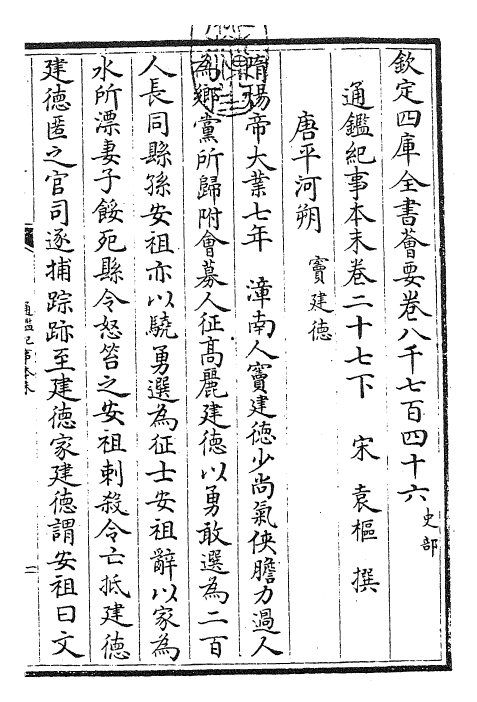 欽定四庫全書薈要卷八千七百四十六 史部
通鑑紀事本末卷二十七下 宋 袁樞 撰
唐平河朔 竇建德
隋煬帝大業七年 漳南人竇建德少尚氣俠膽力過人
為鄉黨所歸附會募人征髙麗建德以勇敢選為二百
人長同縣孫安祖亦以驍勇選為征士安祖辭以家為
水所漂妻子餒死縣令怒笞之安祖刺殺令亡抵建德
建德匿之官司逐捕踪跡至建德家建德謂安祖曰文
通鑑紀事本末